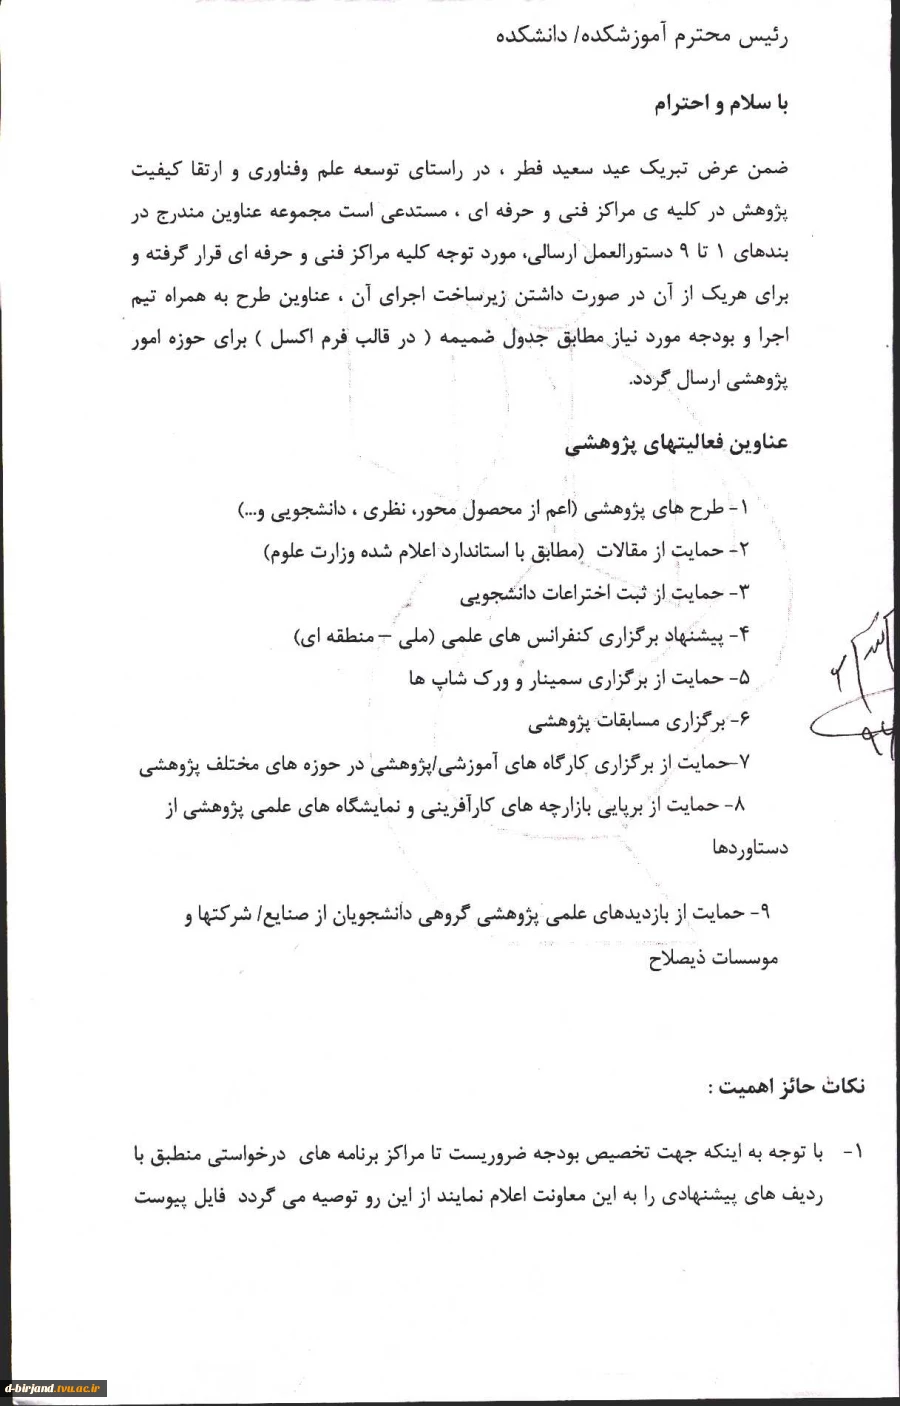 رئیس محترم آموزشکده/ دانشکده
با سلام و احترام
ضمن عرض تبریک عید سعید فطر ، در راستای توسعه علم وفناوری و ارتقا کیفیت
پژوهش در کلیه ی مراکز فنی و حرفه ای ، مستدعی است مجموعه عناوین مندرج در
بندهای ۱ تا ۹ دستورالعمل ارسالی، مورد توجه کلیه مراکز فنی و حرفه ای قرار گرفته و
برای هریک از آن در صورت داشتن زیرساخت اجرای آن ، عناوین طرح به همراه تیم
اجرا و بودجه مورد نیاز مطابق جدول ضمیمه ( در قالب فرم اکسل ) برای حوزه امور
پژوهشی ارسال گردد.
عناوین فعالیتهای پژوهشی
۱- طرح های پژوهشی (اعم از محصول محور، نظری ، دانشجویی و...)
۲- حمایت از مقالات (مطابق با استاندارد اعلام شده وزارت علوم)
۳- حمایت از ثبت اختراعات دانشجویی
۴- پیشنهاد برگزاری کنفرانس های علمی (ملی – منطقه ای)
۵- حمایت از برگزاری سمینار و ورک شاپ ها
۶- برگزاری مسابقات پژوهشی
۷-حمایت از برگزاری کارگاه های آموزشی/پژوهشی در حوزه های مختلف پژوهشی
۸- حمایت از برپایی بازارچه های کارآفرینی و نمایشگاه های علمی پژوهشی از
دستاوردها
۹- حمایت از بازدیدهای علمی پژوهشی گروهی دانشجویان از صنایع/ شرکتها و
موسسات ذیصلاح
نکات حائز اهمیت :
۱- با توجه به اینکه جهت تخصیص بودجه ضروریست تا مراکز برنامه های درخواستی منطبق با
ردیف های پیشنهادی را به این معاونت اعلام نمایند از این رو توصیه می گردد فایل پیوست
d-birjand.tvu.ac.ir